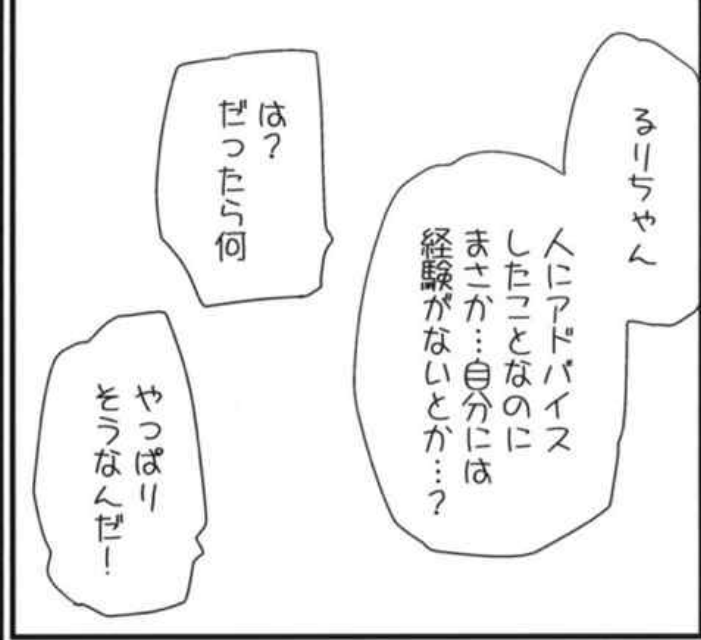 るりちゃん
人にアドバイス
したことなのに
まさか…自分には
経験がないとか…？
は？
だったら何
やっぱり
そうなんだ！